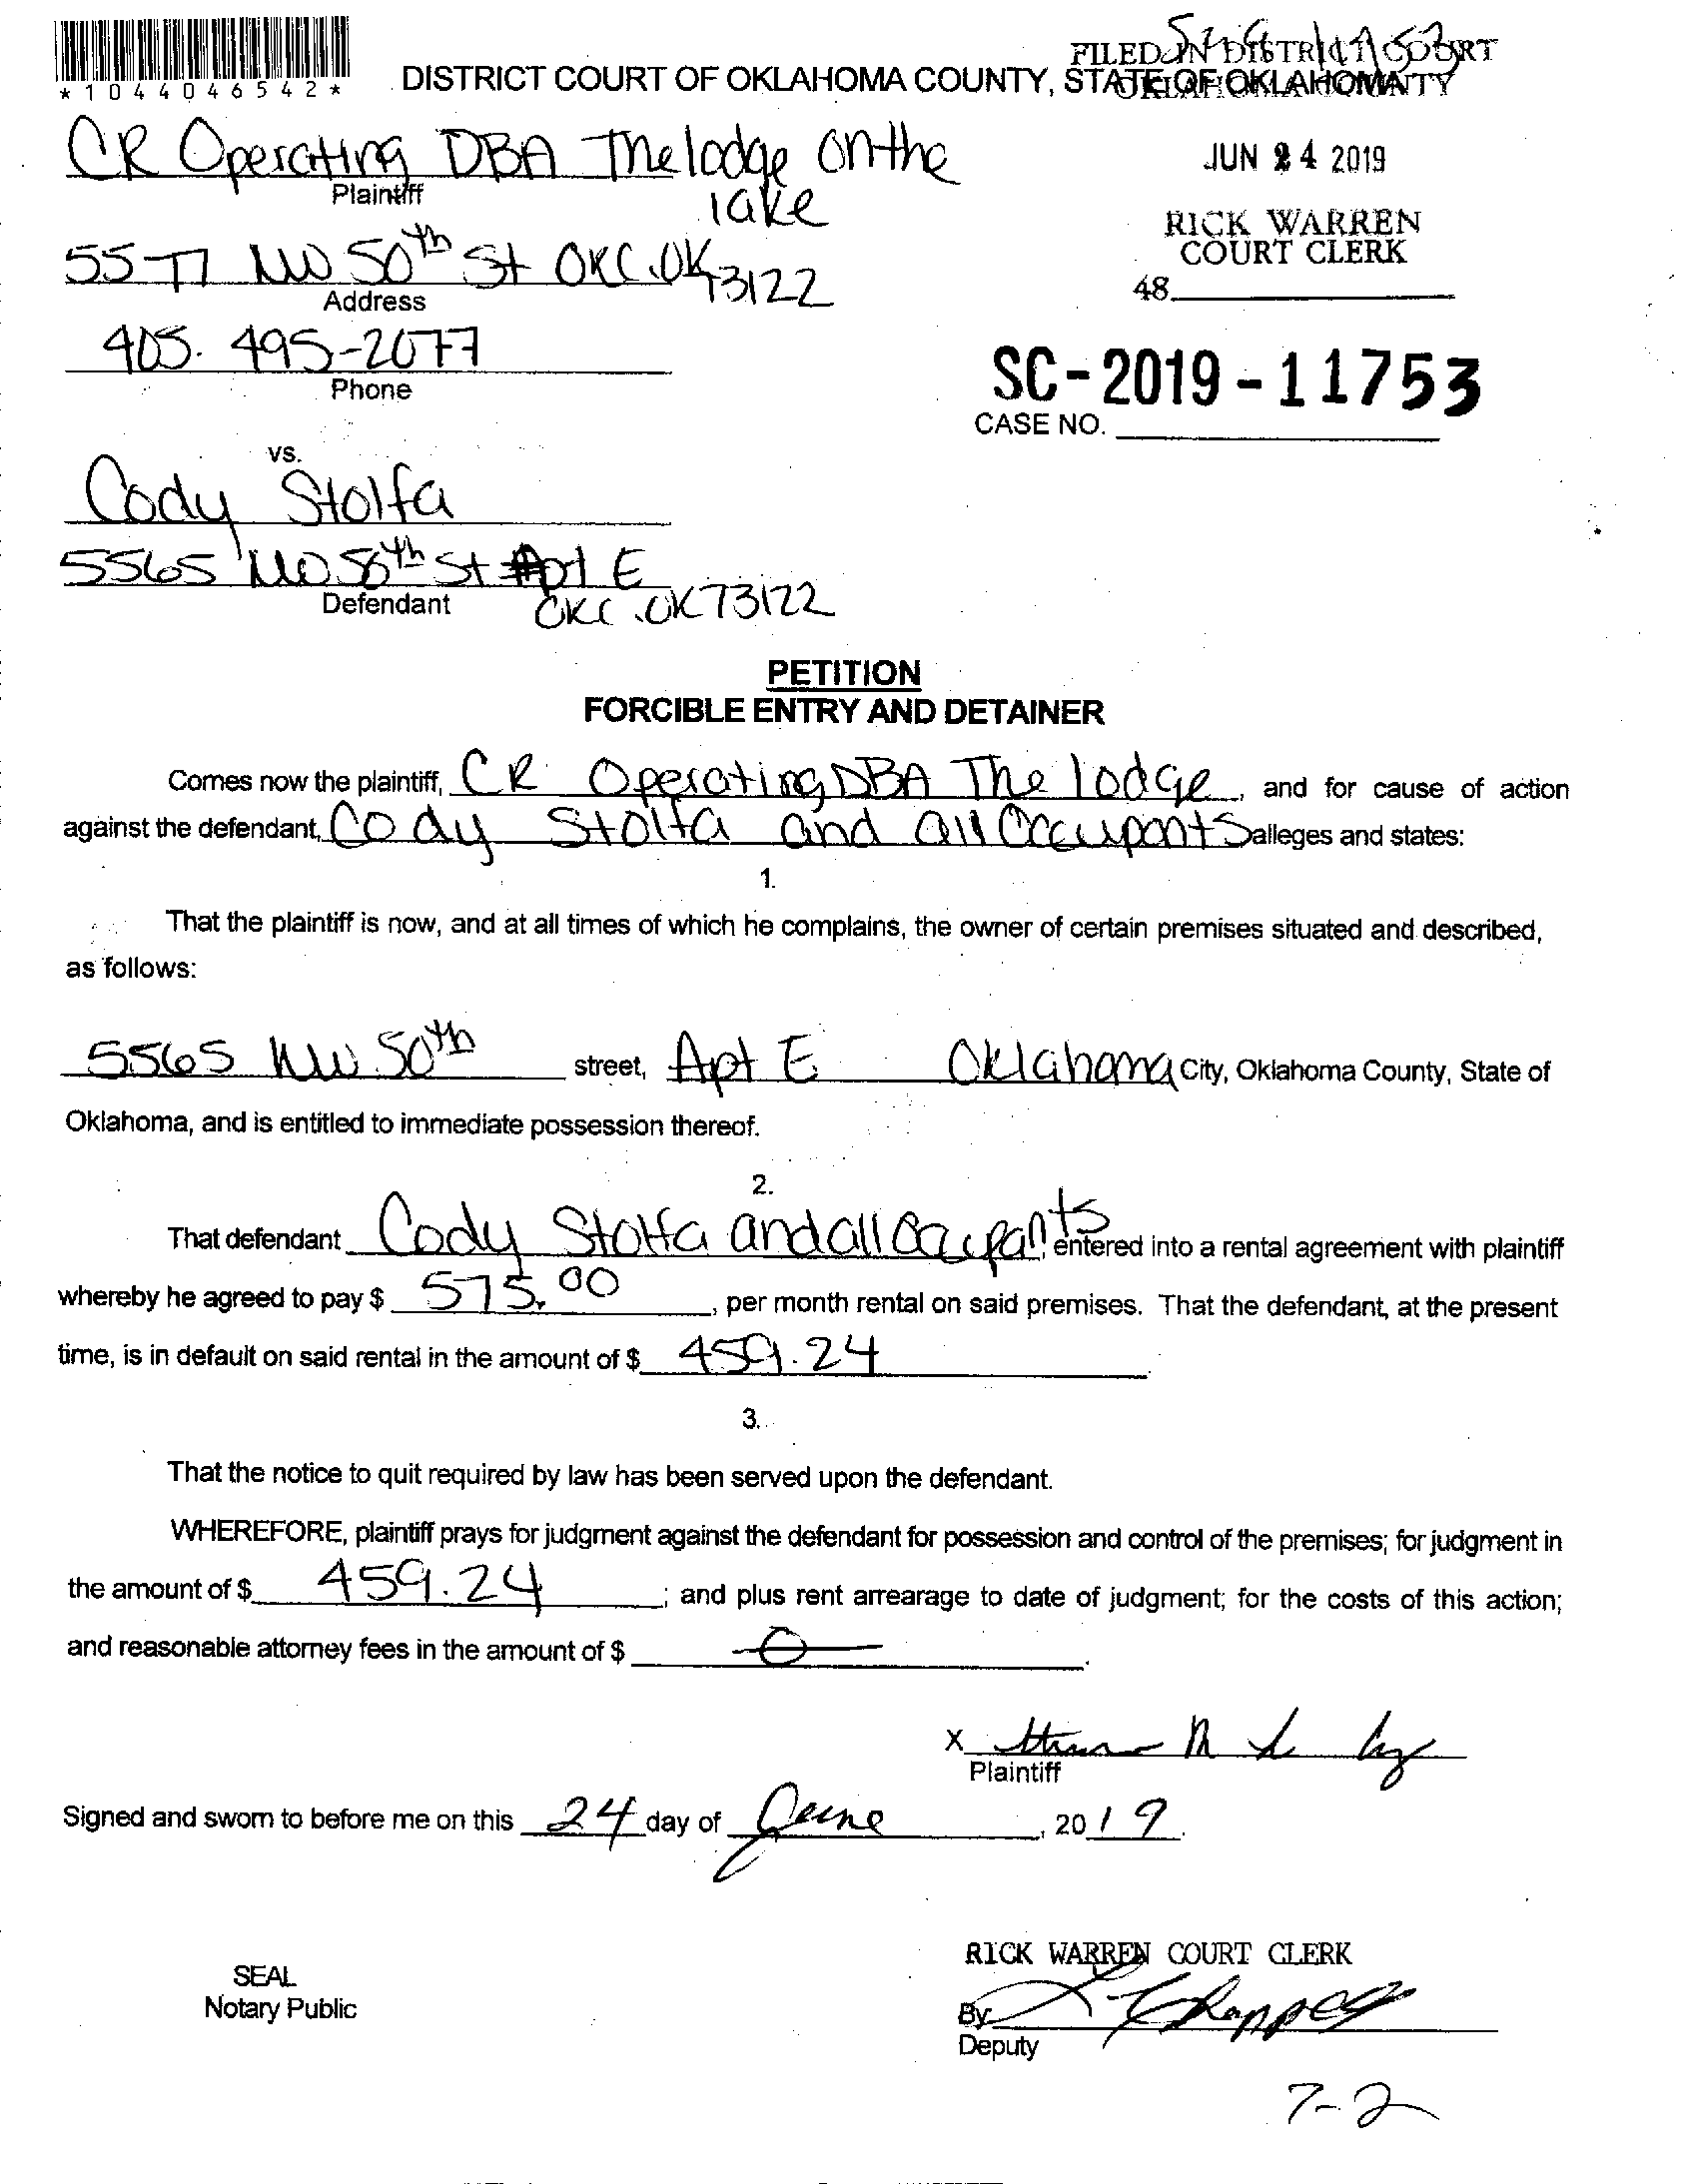 FILED IN DISTRICT COURT
OKLAHOMA COUNTY
*1044046542*
DISTRICT COURT OF OKLAHOMA COUNTY, STATE OF OKLAHOMA
CR Operating DBA The lodge on the
lake
Plaintiff
JUN 24 2019
RICK WARREN
COURT CLERK
48
5577 NW 50th St OKC.OK 73122
Address
405. 495-2077
Phone
SC-2019-11753
CASE NO.
vs.
Cody Stolfa
5565 NW 50th St Apt E
Defendant
OKC.OK 73122
PETITION
FORCIBLE ENTRY AND DETAINER
Comes now the plaintiff, CR Operating DBA The lodge, and for cause of action
against the defendant, Cody Stolfa and all Occupants alleges and states:
1.
That the plaintiff is now, and at all times of which he complains, the owner of certain premises situated and described,
as follows:
5565 NW 50th street, Apt E Oklahoma City, Oklahoma County, State of
Oklahoma, and is entitled to immediate possession thereof.
2.
That defendant Cody Stolfa and all Occupants, entered into a rental agreement with plaintiff
whereby he agreed to pay $ 575.00, per month rental on said premises. That the defendant, at the present
time, is in default on said rental in the amount of $ 459.24
3.
That the notice to quit required by law has been served upon the defendant.
WHEREFORE, plaintiff prays for judgment against the defendant for possession and control of the premises; for judgment in
the amount of $ 459.24; and plus rent arrearage to date of judgment; for the costs of this action;
and reasonable attorney fees in the amount of $ 0.
X
Plaintiff
Signed and sworn to before me on this 24 day of June, 2019.
RICK WARREN COURT CLERK
SEAL
Notary Public
By
Deputy
7-2